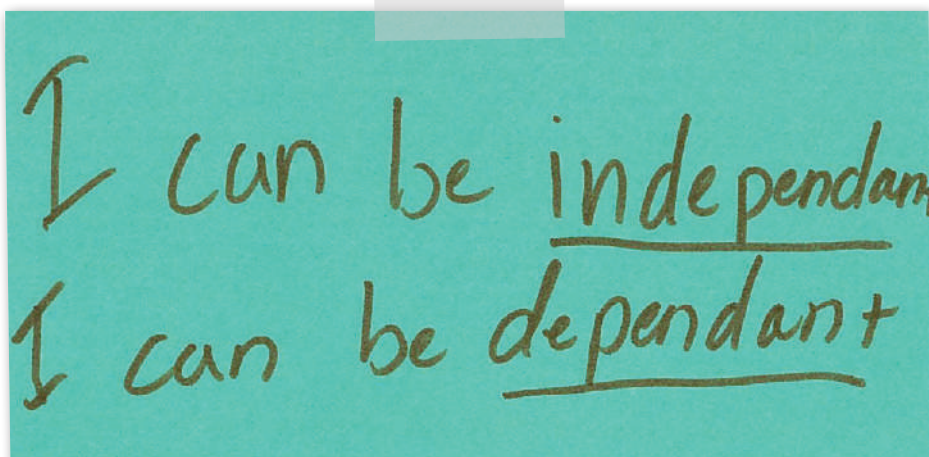 I can be independant
I can be dependant